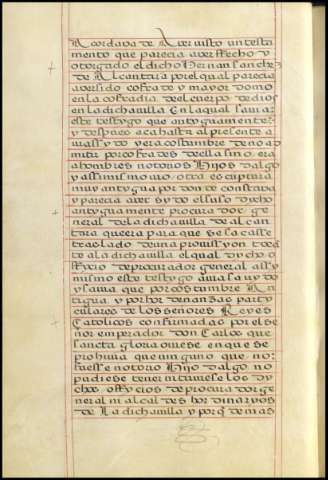 Acordava de aver visto un testa
mento que parecia aver ffecho y
otorgado el dicho Hernan sanchez
de Alcantara por el qual parecia
aver sido cofrade y mayordomo
en la cofradia del cuerpo de dios
en la dicha villa En la qual savia
este testygo que antyguamente
y despues aca hasta al presente a
via ssydo y era costumbre de no ad
mitir por cofrades de ella sino era
a hombres notorios Hijos dalgo
y assi mismo avia otra escriptura
muy antygua por donde constava
y parecia aver sydo el suso dycho
antyguamente procurador ge
neral de la dicha villa de alcan
tara que era para que se sacasse
traslado de una provissyon toca
te a la dicha villa el qual dycho o
ffycio de procurador general assy
mismo este testygo avia savydo
y savia que por costumbre An
tigua y por hordenanzas party
culares de los señores Reyes
Catolicos confirmadas por el se
ñor emperador don Carlos que
sancta gloria oviese en que se
prohivia que ninguno que no
fuesse notorio Hijo dalgo no
pudiese tener ni tuviese los dy
chos offycios de procurador ge
neral ni alcaldes hordinaryos
de La dicha villa y porque demas